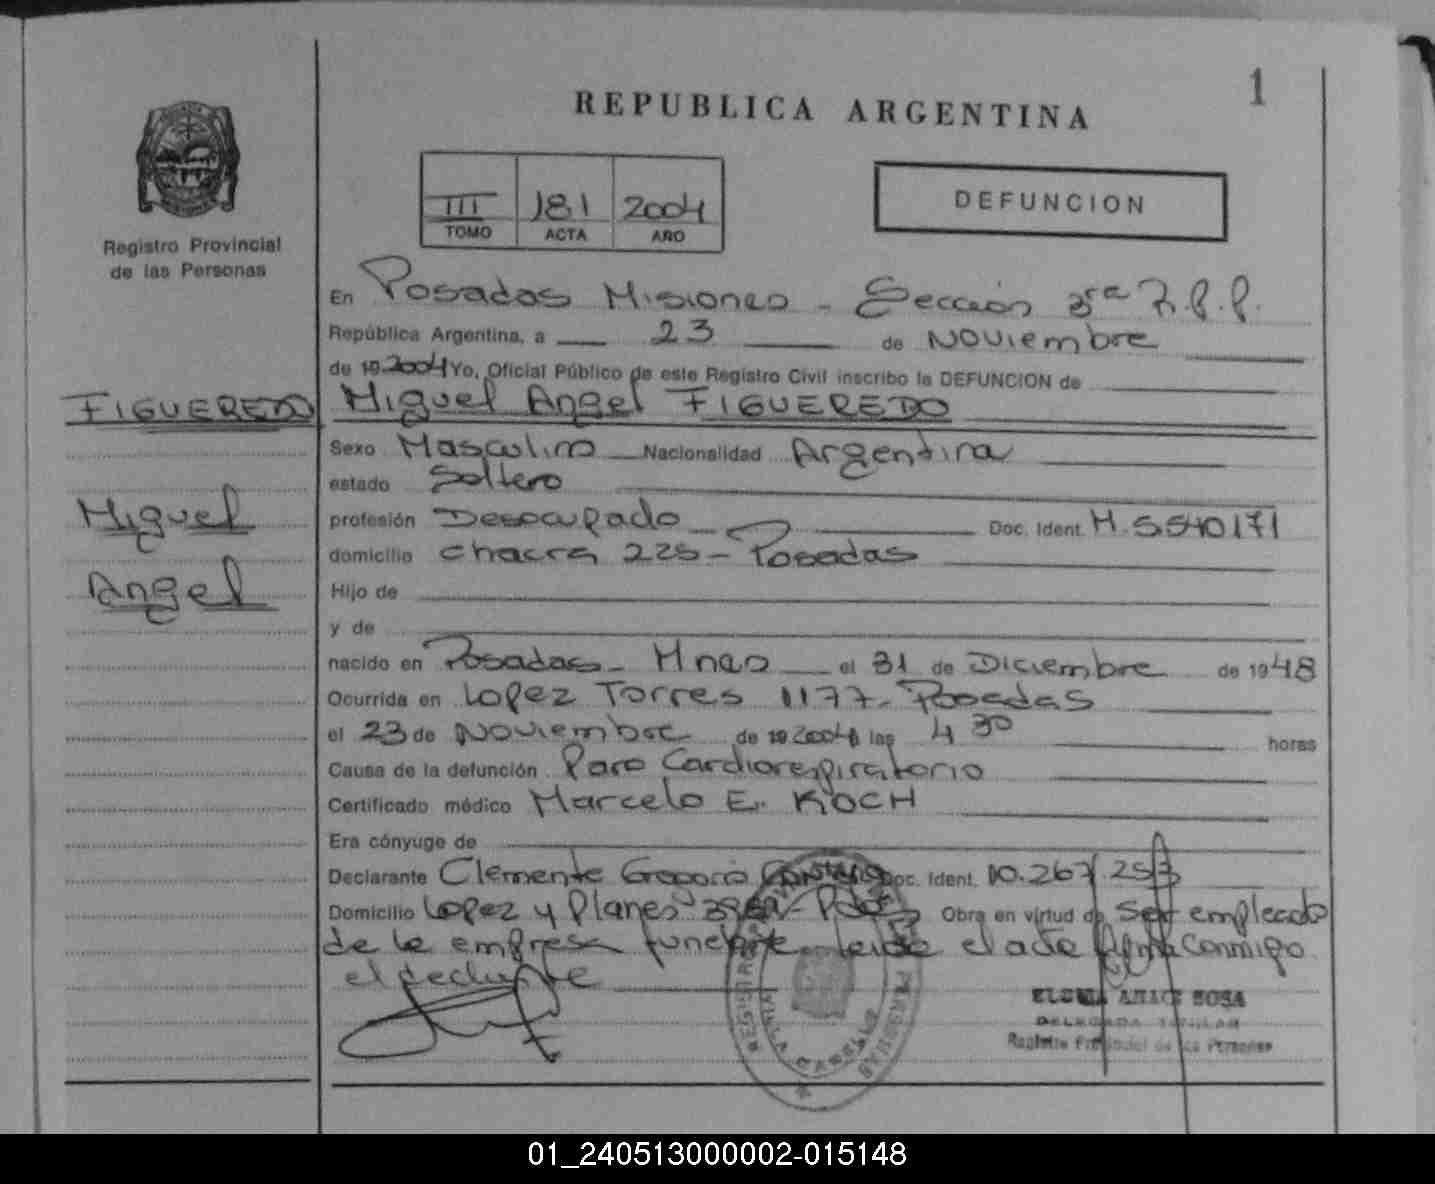 1
REPUBLICA ARGENTINA
DEFUNCION
III 181 2004
TOMO ACTA AÑO
Registro Provincial
de las Personas
En Posadas Misiones - Sección 3ra R.P.P.
República Argentina, a 23 de Noviembre
de 192004 Yo, Oficial Público de este Registro Civil inscribo la DEFUNCION de
FIGUEREDO
Miguel
Angel
Miguel Angel FIGUEREDO
Sexo Masculino Nacionalidad Argentina
estado Soltero
profesión Desocupado Doc. Ident. M. 5.540171
domicilio Chacra 225 - Posadas
Hijo de
y de
nacido en Posadas - Mnes el 31 de Diciembre de 1948
Ocurrida en Lopez Torres 1177 - Posadas
el 23 de Noviembre de 192004 a las 4 30 horas
Causa de la defunción Paro Cardiorespiratorio
Certificado médico Marcelo E. KOCH
Era cónyuge de
Declarante Clemente Gregorio Doc. Ident. 10.267.253
Domicilio Lopez y Planes Obra en virtud de ser empleado
de la empresa funebre leida el acta firma conmigo
el declarante
VILLA CABELLO
ANAI SOSA
DELEGADA TITULAR
Registro Provincial de las Personas
01_240513000002-015148